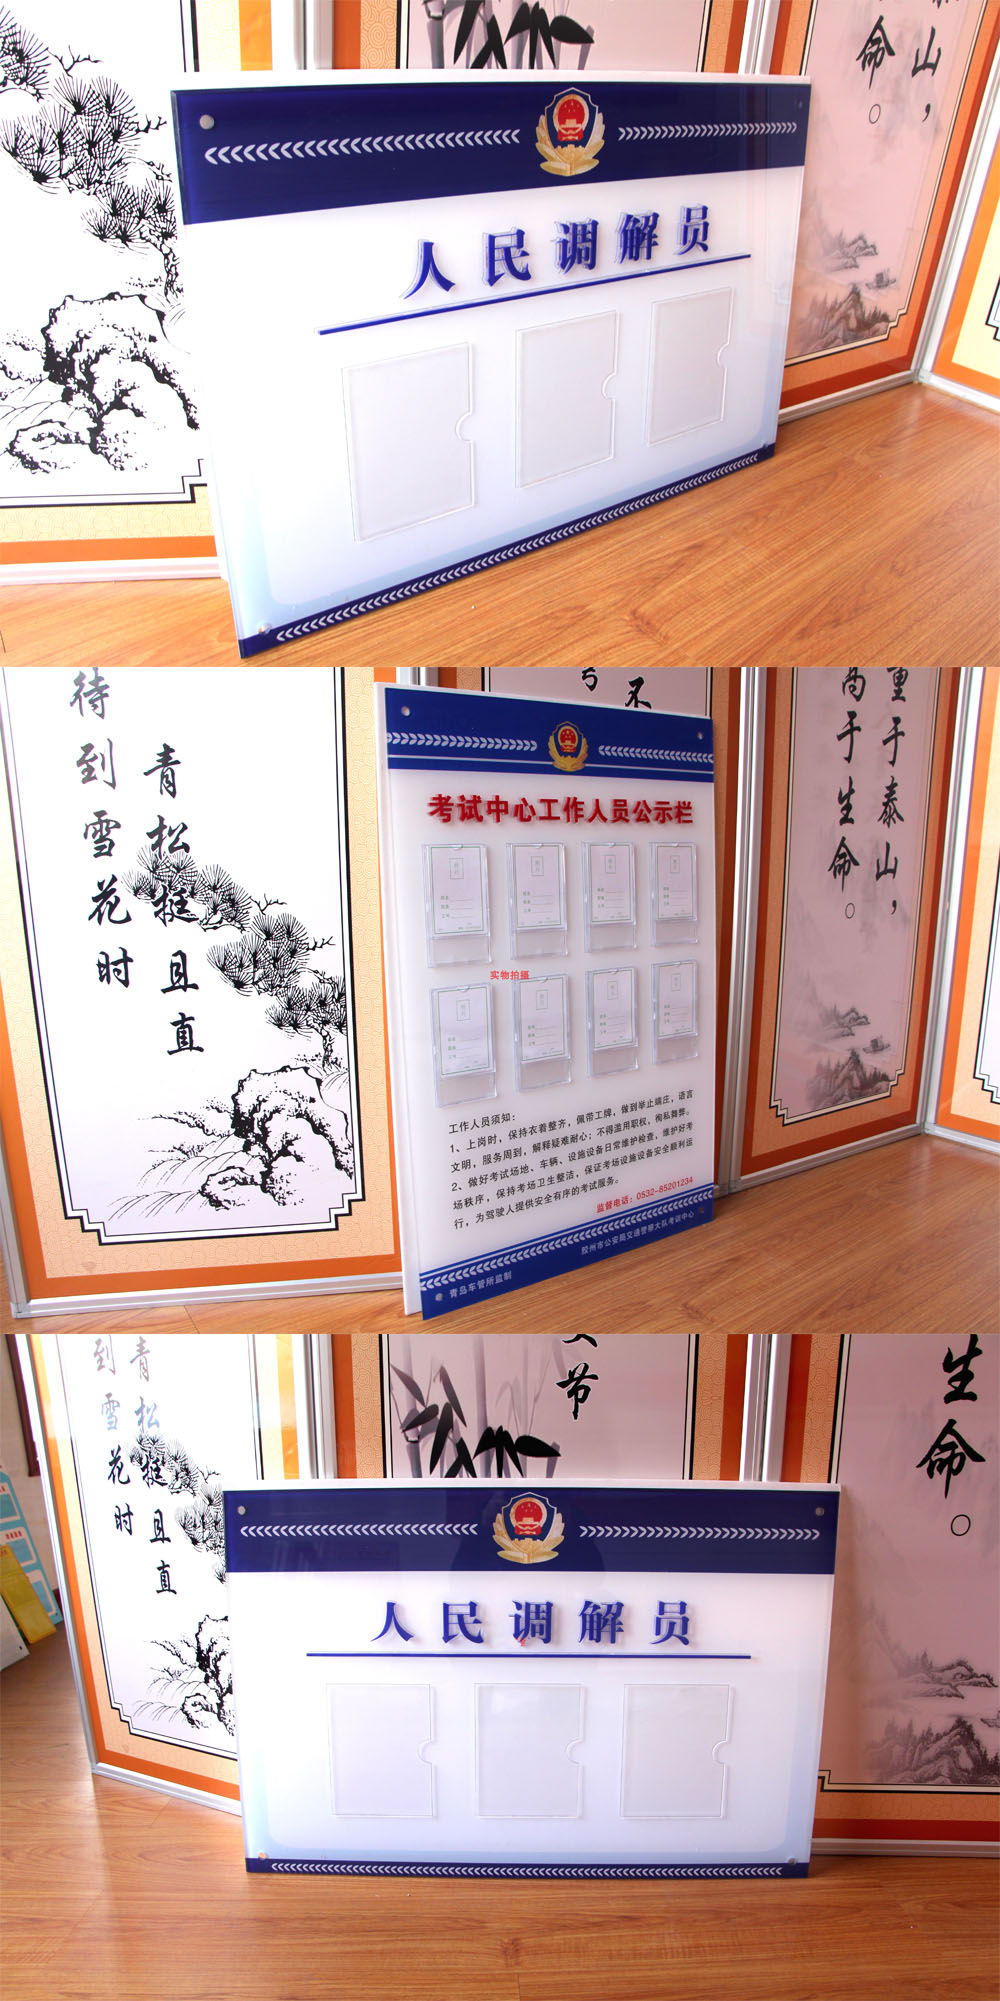 山，
命。
人民调解员
待到雪花时
青松挺且直
重于泰山，
高于生命。
考试中心工作人员公示栏
实物拍摄
工作人员须知：
1、上岗时，保持衣着整齐，佩带工牌，做到举止端庄，语言
文明，服务周到，解释疑难耐心；不得滥用职权，徇私舞弊。
2、做好考试场地、车辆、设施设备日常维护检查，维护好考
场秩序，保持考场卫生整洁，保证考场设施设备安全顺利运
行，为驾驶人提供安全有序的考试服务。
监督电话：0532-85201234
青岛车管所监制
胶州市公安局交通警察大队考训中心
到雪花时
青松挺且直
节
生命。
人民调解员